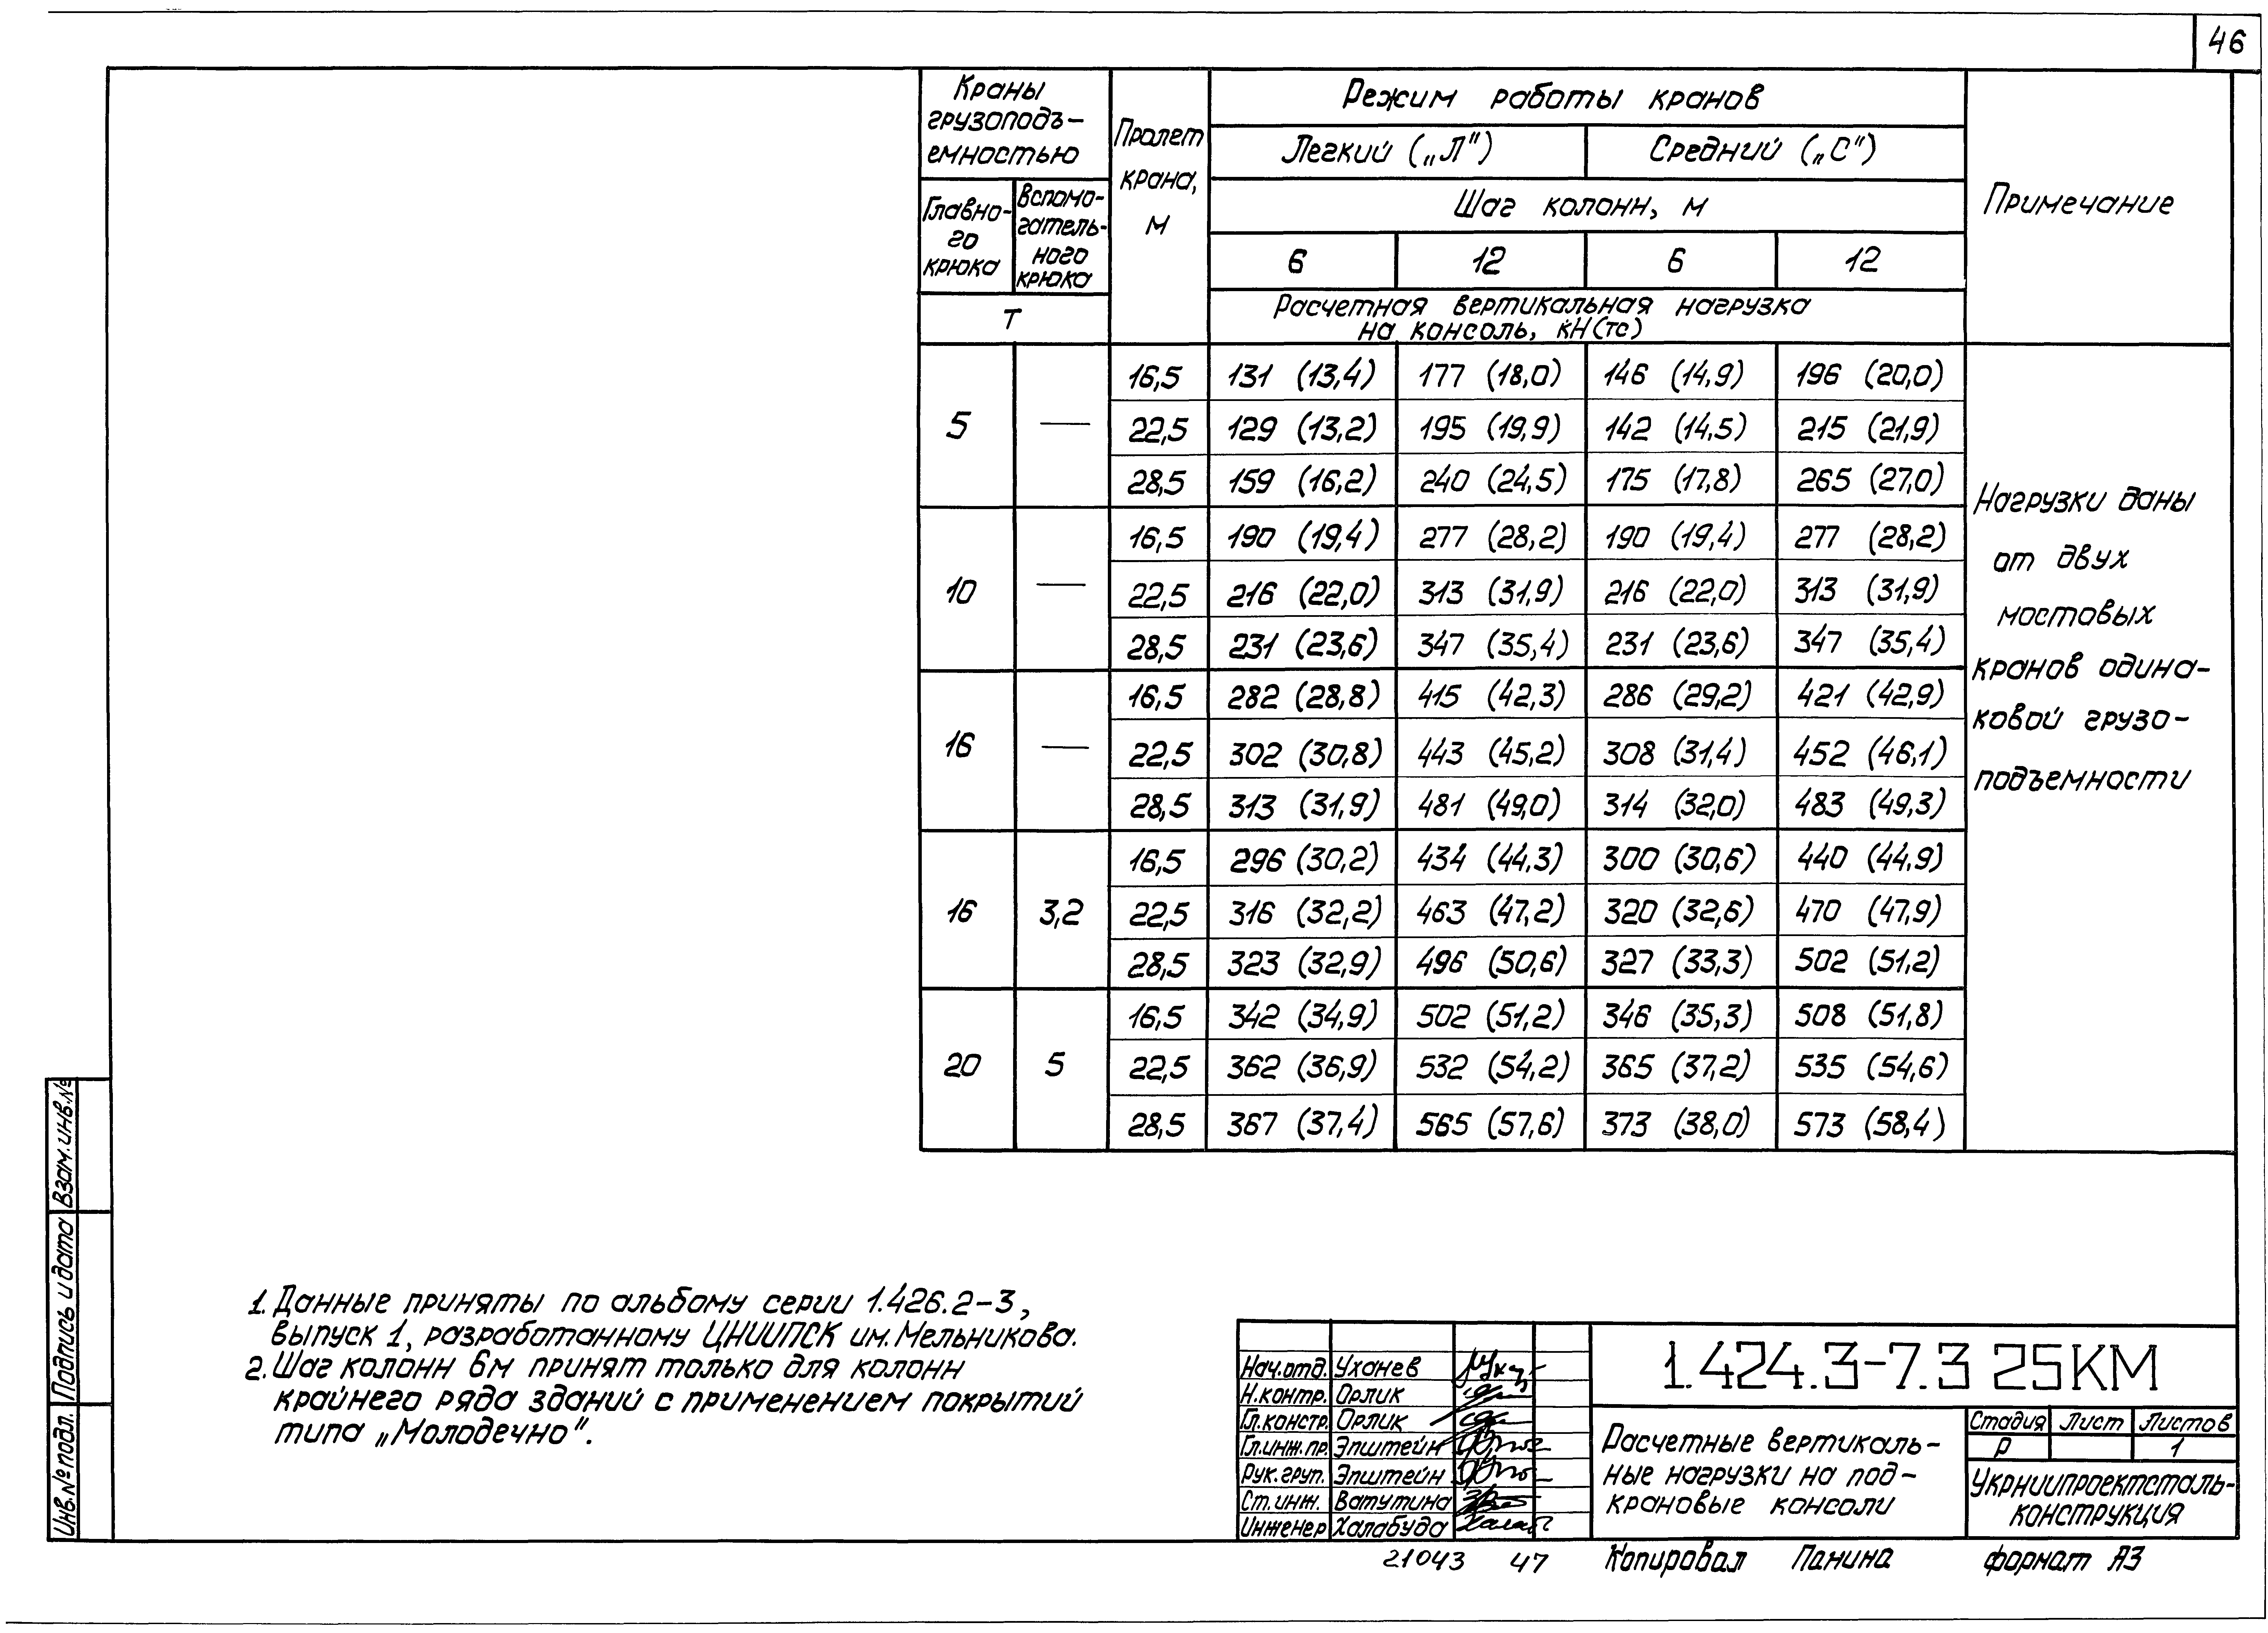 46
Краны
грузоподъ-
емностью
Пролет
крана,
м
Режим работы кранов
Примечание
Легкий („Л")
Средний („С")
Главно-
го
крюка
Вспомо-
гатель-
ного
крюка
Шаг колонн, м
6 12 6 12
Т
Расчетная вертикальная нагрузка
на консоль, кН(тс)
5 — 16,5 131 (13,4) 177 (18,0) 146 (14,9) 196 (20,0)
22,5 129 (13,2) 195 (19,9) 142 (14,5) 215 (21,9)
28,5 159 (16,2) 240 (24,5) 175 (17,8) 265 (27,0)
10 — 16,5 190 (19,4) 277 (28,2) 190 (19,4) 277 (28,2)
22,5 216 (22,0) 313 (31,9) 216 (22,0) 313 (31,9)
28,5 231 (23,6) 347 (35,4) 231 (23,6) 347 (35,4)
16 — 16,5 282 (28,8) 415 (42,3) 286 (29,2) 421 (42,9)
22,5 302 (30,8) 443 (45,2) 308 (31,4) 452 (46,1)
28,5 313 (31,9) 481 (49,0) 314 (32,0) 483 (49,3)
16 3,2 16,5 296 (30,2) 434 (44,3) 300 (30,6) 440 (44,9)
22,5 316 (32,2) 463 (47,2) 320 (32,6) 470 (47,9)
28,5 323 (32,9) 496 (50,6) 327 (33,3) 502 (51,2)
20 5 16,5 342 (34,9) 502 (51,2) 346 (35,3) 508 (51,8)
22,5 362 (36,9) 532 (54,2) 365 (37,2) 535 (54,6)
28,5 367 (37,4) 565 (57,6) 373 (38,0) 573 (58,4)
Нагрузки даны
от двух
мостовых
кранов одина-
ковой грузо-
подъемности
1. Данные приняты по альбому серии 1.426.2-3,
выпуск 1, разработанному ЦНИИПСК им. Мельникова.
2. Шаг колонн 6м принят только для колонн
крайнего ряда зданий с применением покрытий
типа „Молодечно".
Взам. инв.№
Подпись и дата
Инв.№ подл.
Нач.отд. Уханев
Н.контр. Орлик
Гл.констр. Орлик
Гл.инж.пр. Эпштейн
Рук.груп. Эпштейн
Ст.инж. Ватутина
Инженер Халабуда
1.424.3-7.3 25КМ
Расчетные вертикаль-
ные нагрузки на под-
крановые консоли
Стадия Лист Листов
Р 1
Укрниипроектсталь-
конструкция
21043 47
Копировал Панина формат А3